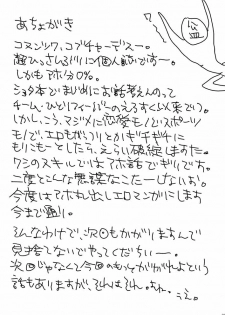 あちょがき
コヌシツワ、コブチャーデスー。
超ひっさしぶりに個人誌ですー。
しかもアホ分0%。
ショタ本でまじめにお話考えんのって
チーム・ひとりフィーバーのえろすくい以来でう。
しかし、こう、マジメに恋愛モノでスポーツ
モノで、エロもがっつりとかギチギチに
もりこもーとしたら、えらい破綻しますた。
ワシのスキルではアホ話でギリです。
二度とこんな無謀なことたーしないお。
今度はアホねた出しエロマンガにします
今まで通り。
そんなわけで、次回もかがりますんで
見捨てないでやってくだちぃー。
次回じゃなくて今回のもっとがんばれよという
話もありますが、それはそれ。ちれ。
うえ。